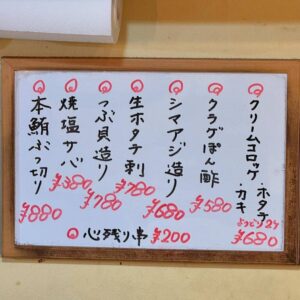 ◎クリームコロッケ・ホタテ
・カキ
よりどり2ケ
¥680
◎クラゲぽん酢
¥580
◎シマアジ造り
¥680
◎生ホタテ刺
¥780
◎つぶ貝造り
¥780
◎焼塩サバ
¥380
◎本鮪ぶつ切り
¥880
◎心残り串 ¥200